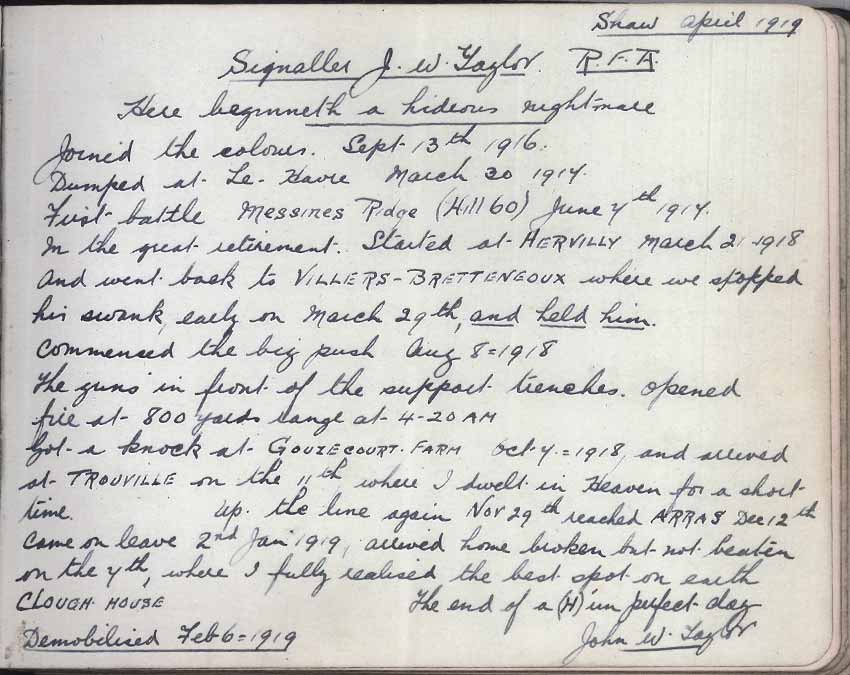 Shaw April 1919
Signaller J. W. Taylor. R.F.A.
Here beginneth a hideous nightmare
Joined the colours. Sept 13th 1916.
Dumped at Le-Havre March 30 1917.
First battle Messines Ridge (Hill 60) June 7th 1917.
In the great retirement. Started at HERVILLY March 21-1918
And went back to VILLERS-BRETTENEOUX where we stopped
his swank, early on March 29th, and held him.
Commensed the big push Aug 8=1918
The guns in front of the support trenches. opened
fire at 800 yards range at 4-20 AM
Got a knock at GOUZECOURT. FARM Oct 7.=1918, and arrived
at TROUVILLE on the 11th, where I dwelt in Heaven for a short
time. Up. the line again Nov 29th reached ARRAS Dec 12th
Came on leave 2nd Jan 1919, arrived home broken but not beaten
on the 7th, where I fully realised the best spot on earth
CLOUGH HOUSE The end of a (H)'un perfect day
Demobilised Feb 6=1919 John W. Taylor